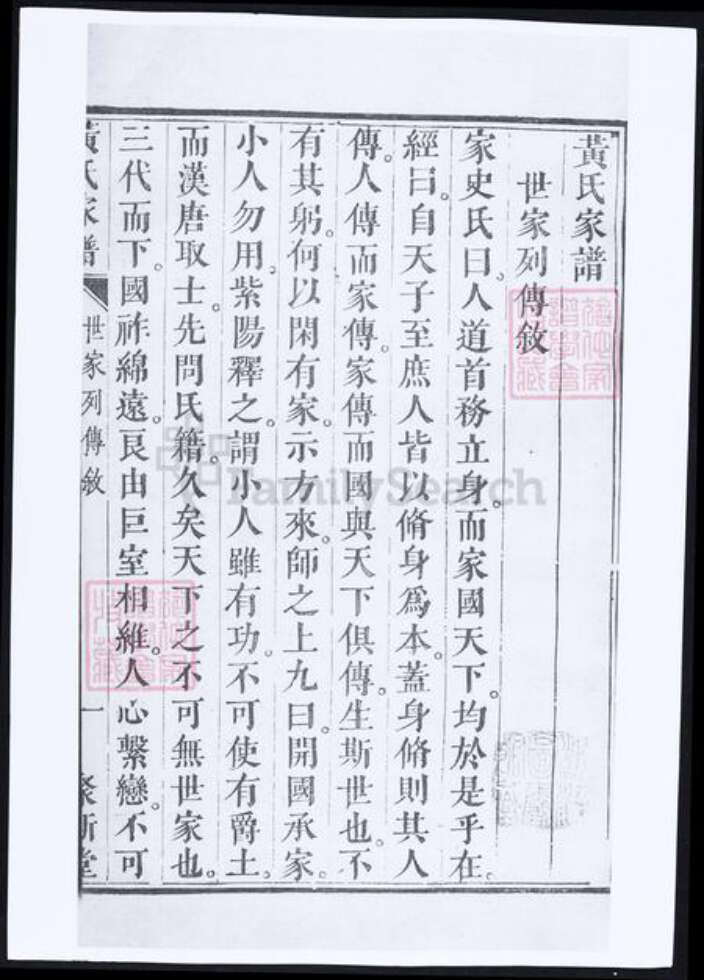 黃氏家譜
世家列傳敘
家史氏曰。人道首務立身。而家國天下。均於是乎在。
經曰。自天子至庶人皆以脩身爲本。蓋身脩則其人
傳。人傳而家傳。家傳而國與天下俱傳。生斯世也。不
有其躬。何以閑有家。示方來。師之上九曰。開國承家。
小人勿用。紫陽釋之。謂小人雖有功。不可使有爵土。
而漢唐取士。先問氏籍。久矣天下之不可無世家也。
三代而下。國祚綿遠。良由巨室相維。人心繫戀。不可
黃氏家譜
世家列傳敘
一
FamilySearch